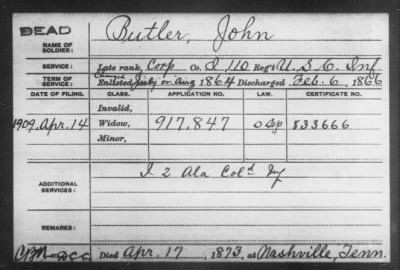 DEAD
Butler, John
NAME OF SOLDIER:
SERVICE: Late rank, Corp Co. I 110 Reg't U.S.C. Inf
TERM OF SERVICE: Enlisted July or Aug 1864 Discharged Feb. 6, 1866
DATE OF FILING. CLASS. APPLICATION NO. LAW. CERTIFICATE NO.
Invalid,
1909, Apr. 14 Widow, 917.847 833666
Minor,
ADDITIONAL SERVICES: I 2 Ala Col'd Inf
REMARKS:
Died Apr. 17, 1873, at Nashville, Tenn.